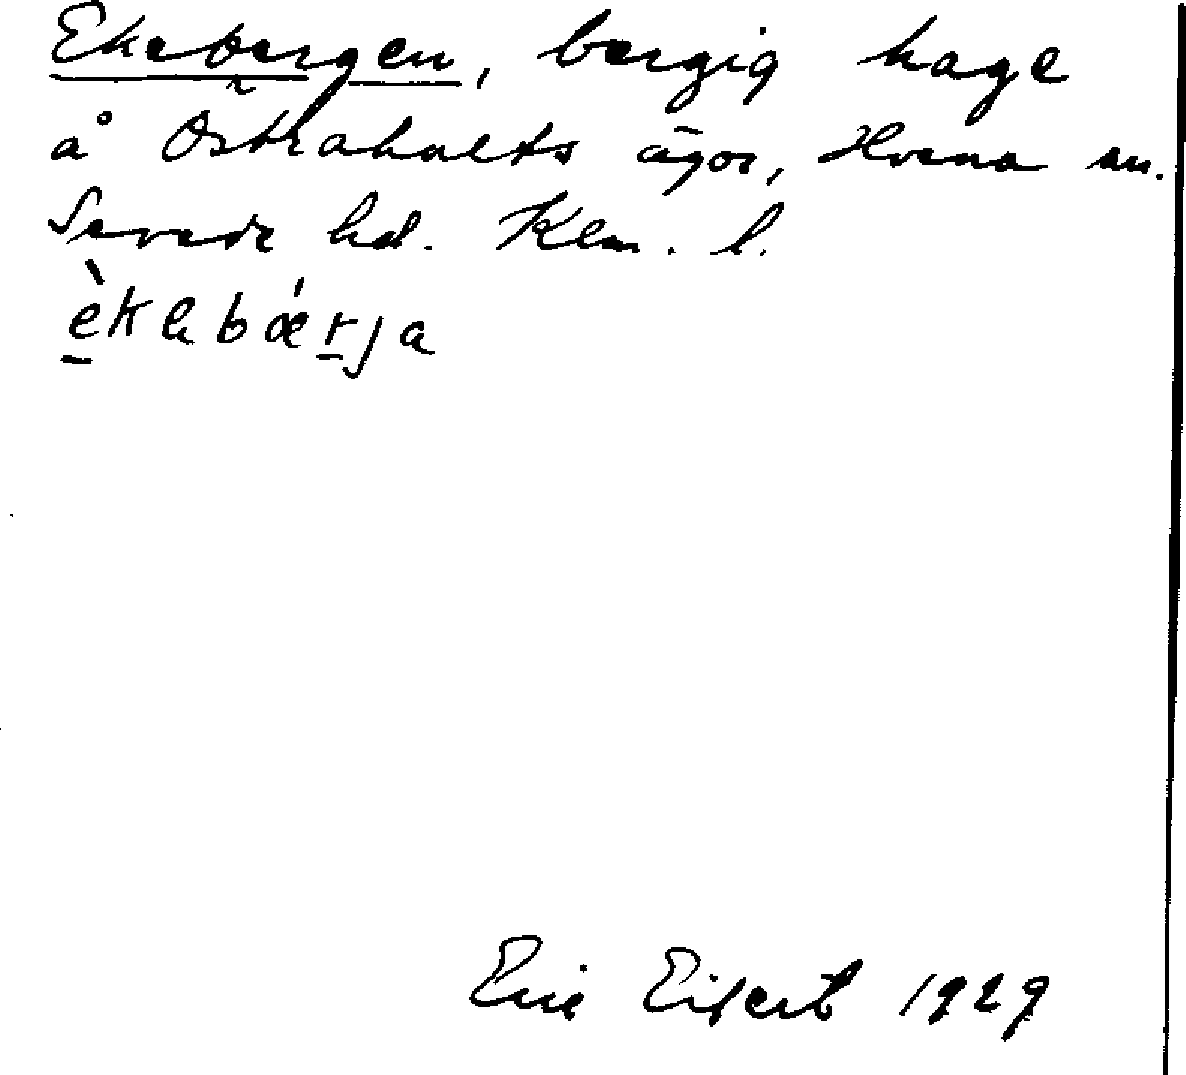 Ekebergen, bergig hage
å Östrahults ägor, Hvena sn.
Sevede hd. Klm. l.
èkəbǽrja
Eric Eifert 1929